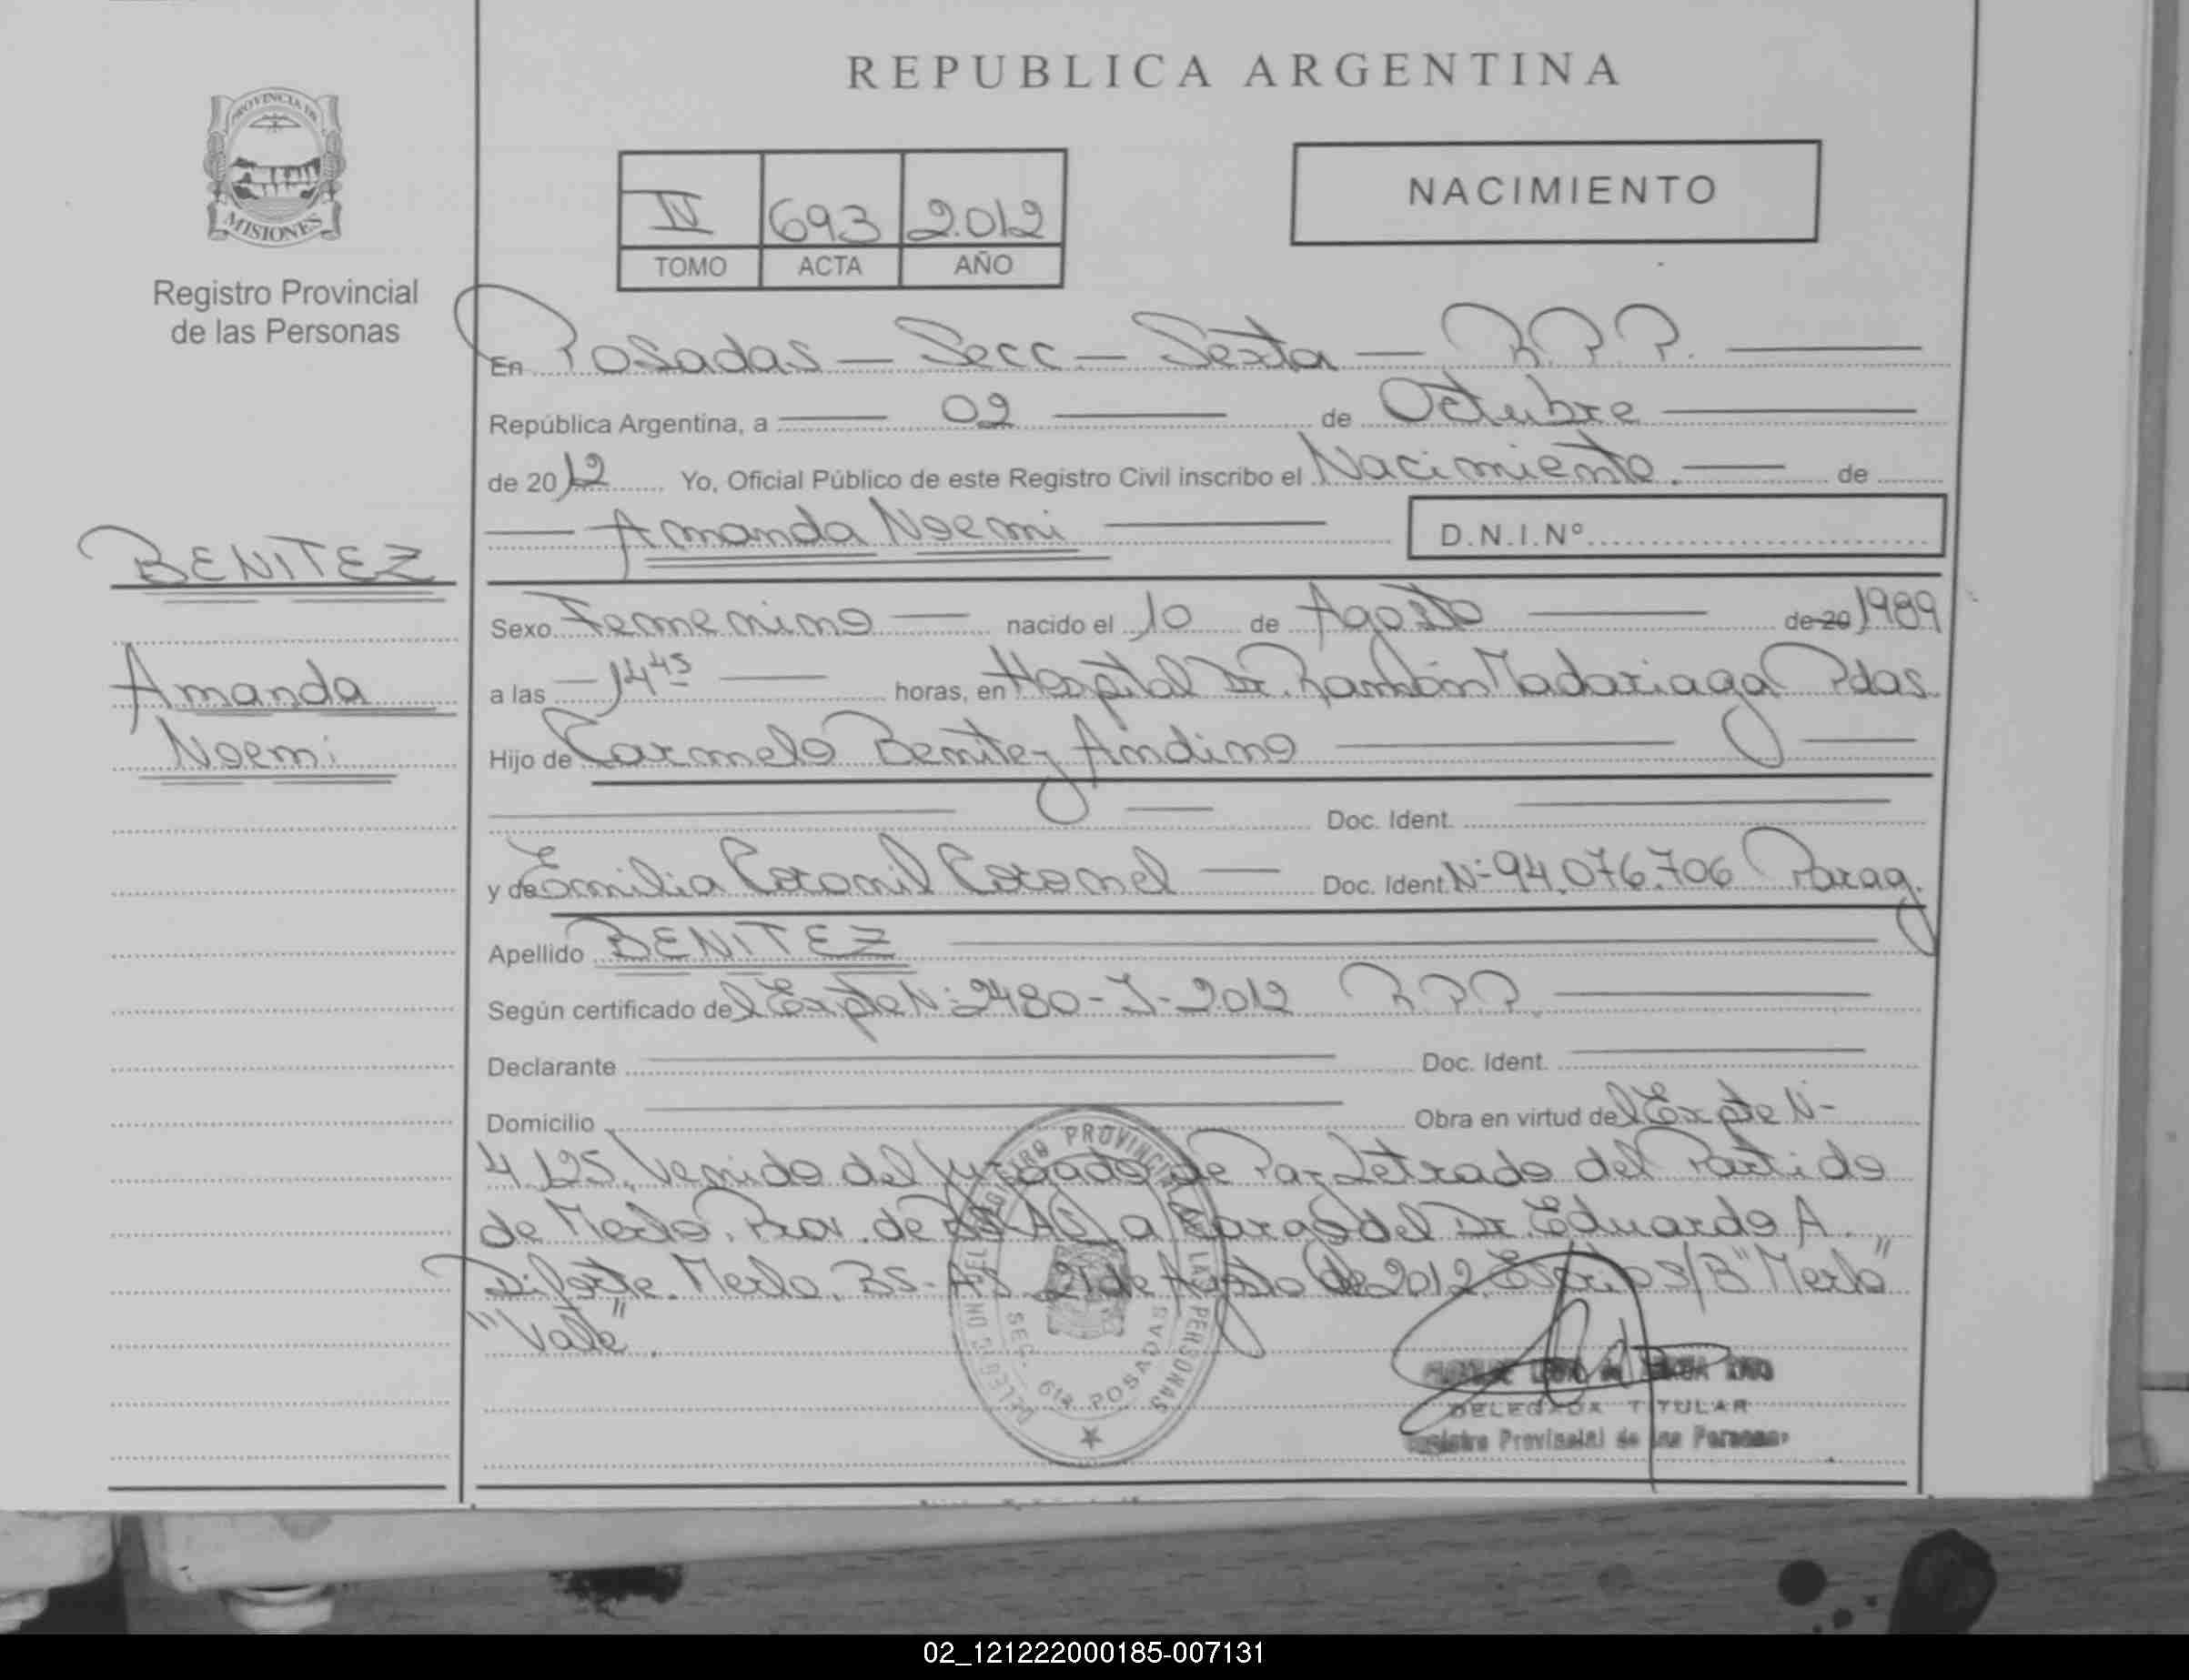 REPUBLICA ARGENTINA
PROVINCIA DE
MISIONES
Registro Provincial
de las Personas
IV 693 2.012
TOMO ACTA AÑO
NACIMIENTO
En Posadas — Secc — Sexta — R.P.P.
República Argentina, a 02 de Octubre
de 2012 Yo, Oficial Público de este Registro Civil inscribo el Nacimiento. de
Amanda Noemi D.N.I.Nº
BENITEZ
Amanda
Noemi
Sexo Femenino nacido el 10 de Agosto de 20 1989
a las 14 45 horas, en Hospital Dr. Ramón Madariaga Pdas.
Hijo de Carmelo Benitez Andino
Doc. Ident.
y de Emilia Coronil Coronel Doc. Ident. Nº 94.076.706 Parag.
Apellido BENITEZ
Según certificado del Expte Nº 2480-J-2.012 R.P.P.
Declarante Doc. Ident.
Domicilio Obra en virtud del Expte Nº
4.125. Venido del Juzgado de Paz Letrado del Partido
de Merlo. Prov. de BS-AS, a Cargo del Dr. Eduardo A.
Merlo. BS-AS 21 de Agosto de 2012. S/B "Merlo"
"Vale".
REGISTRO PROVINCIAL DE LAS PERSONAS
SEC. 6ta POSADAS
DELEGADA TITULAR
Registro Provincial de las Personas
02_121222000185-007131